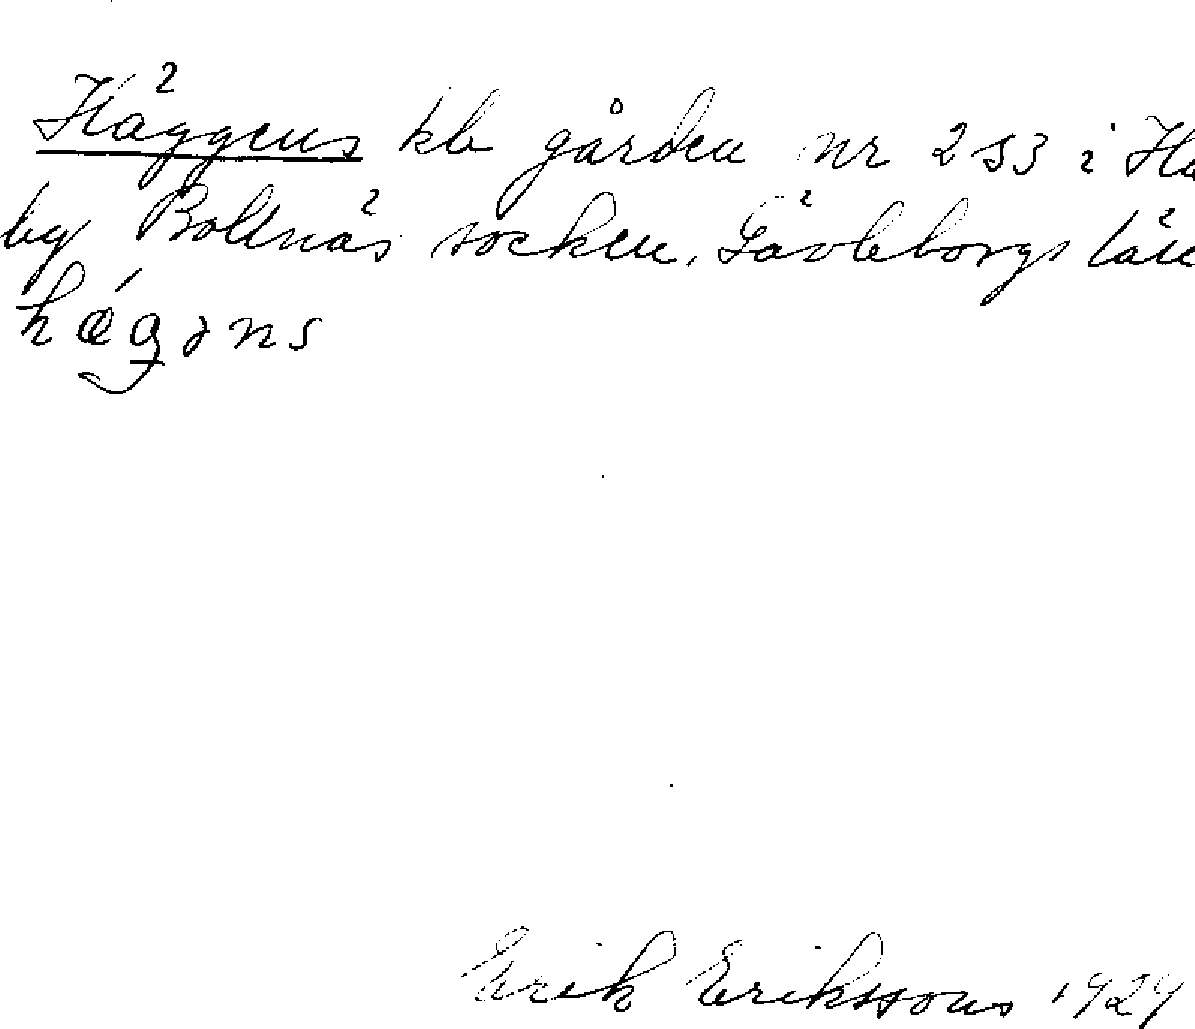 Häggens kb gården nr 2 S3 i Ha
by Bollnäs socken. Gävleborgs län
hǽgəns
Erik Eriksson 1929